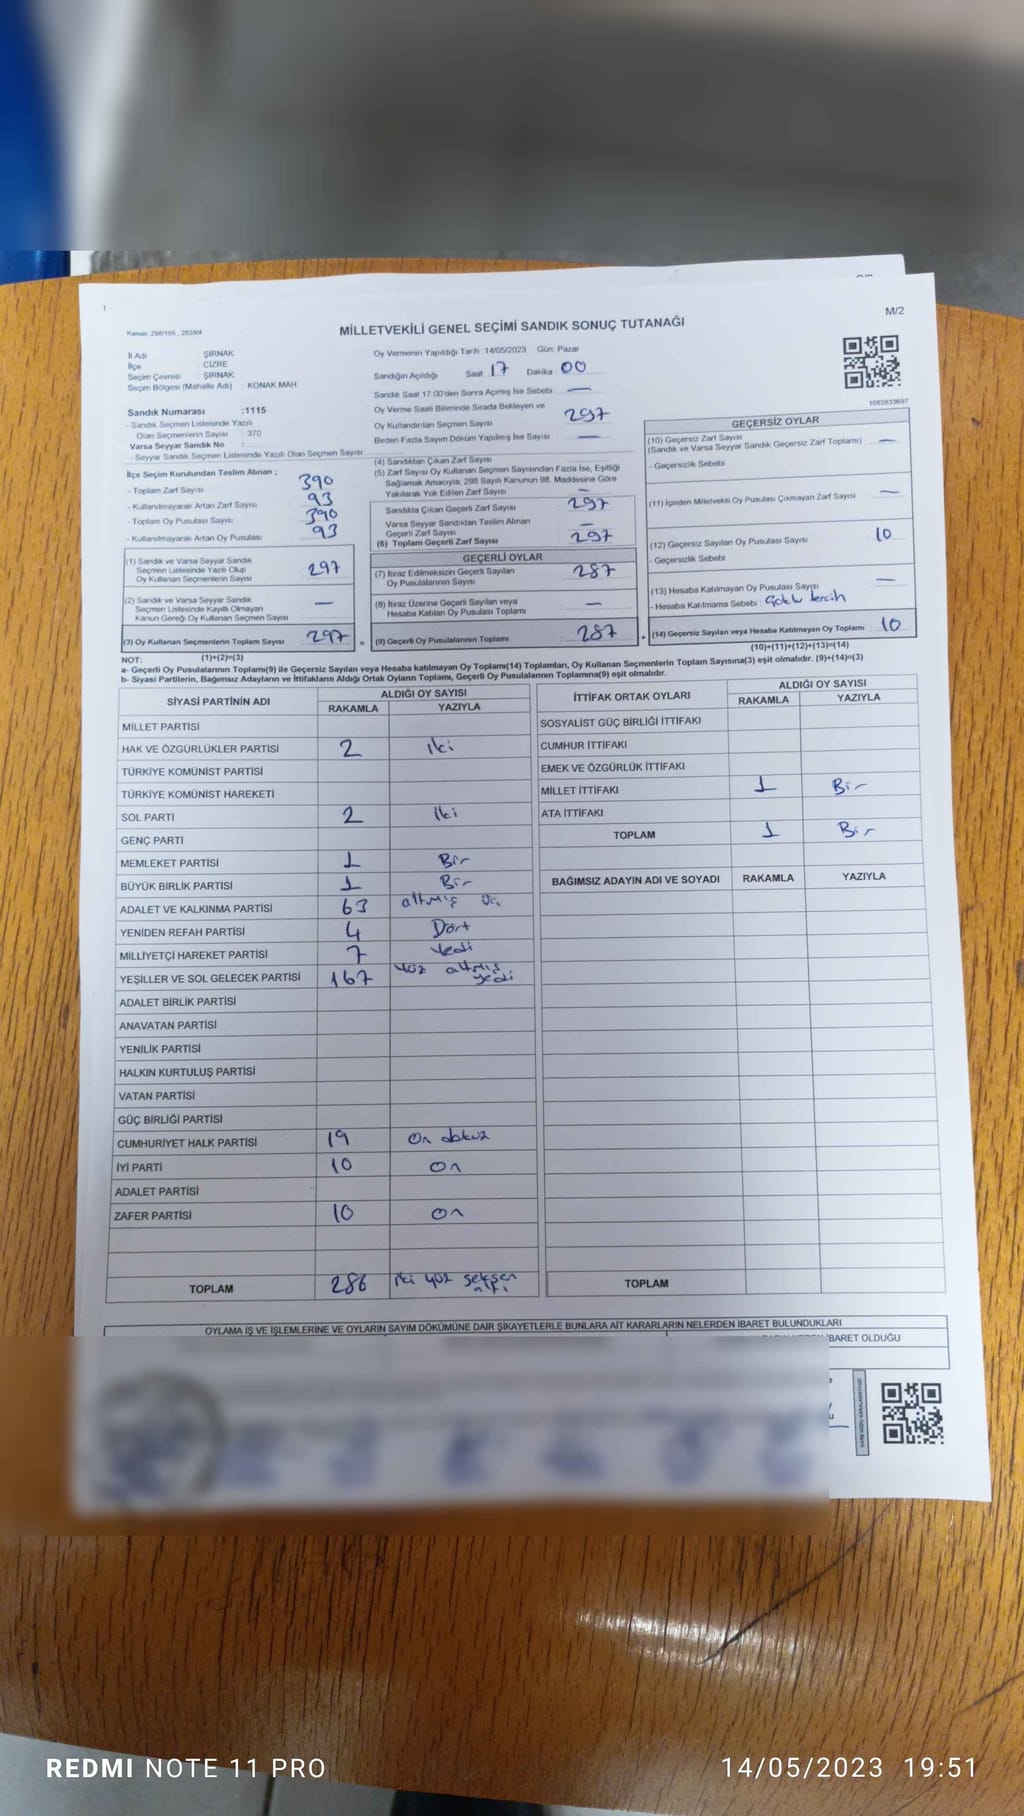 M/2
Kanun: 298/105 , 2839/4
MİLLETVEKİLİ GENEL SEÇİMİ SANDIK SONUÇ TUTANAĞI
İl Adı : ŞIRNAK
İlçe : CİZRE
Seçim Çevresi : ŞIRNAK
Seçim Bölgesi (Mahalle Adı) : KONAK MAH.
Sandık Numarası :1115
- Sandık Seçmen Listesinde Yazılı
Olan Seçmenlerin Sayısı : 370
Varsa Seyyar Sandık No :
- Seyyar Sandık Seçmen Listesinde Yazılı Olan Seçmen Sayısı :
İlçe Seçim Kurulundan Teslim Alınan ;
- Toplam Zarf Sayısı 390
- Kullanılmayarak Artan Zarf Sayısı 93
- Toplam Oy Pusulası Sayısı 390
- Kullanılmayarak Artan Oy Pusulası 93
(1) Sandık ve Varsa Seyyar Sandık
Seçmen Listesinde Yazılı Olup
Oy Kullanan Seçmenlerin Sayısı 297
(2) Sandık ve Varsa Seyyar Sandık
Seçmen Listesinde Kayıtlı Olmayan
Kanun Gereği Oy Kullanan Seçmen Sayısı —
(3) Oy Kullanan Seçmenlerin Toplam Sayısı 297 =
(1)+(2)=(3)
Oy Vermenin Yapıldığı Tarih :14/05/2023 Gün: Pazar
Sandığın Açıldığı Saat : 17 Dakika : 00
Sandık Saat 17:00'den Sonra Açılmış İse Sebebi : —
Oy Verme Saati Bitiminde Sırada Bekleyen ve
Oy Kullandırılan Seçmen Sayısı 297
Birden Fazla Sayım Döküm Yapılmış İse Sayısı —
(4) Sandıktan Çıkan Zarf Sayısı
(5) Zarf Sayısı Oy Kullanan Seçmen Sayısından Fazla İse, Eşitliği
Sağlamak Amacıyla, 298 Sayılı Kanunun 98. Maddesine Göre
Yakılarak Yok Edilen Zarf Sayısı —
Sandıkta Çıkan Geçerli Zarf Sayısı 297
Varsa Seyyar Sandıktan Teslim Alınan
Geçerli Zarf Sayısı —
(6) Toplam Geçerli Zarf Sayısı 297
GEÇERLİ OYLAR
(7) İtiraz Edilmeksizin Geçerli Sayılan
Oy Pusulalarının Sayısı 287
(8) İtiraz Üzerine Geçerli Sayılan veya
Hesaba Katılan Oy Pusulası Toplamı —
(9) Geçerli Oy Pusulalarının Toplamı 287 +
1083833697
GEÇERSİZ OYLAR
(10) Geçersiz Zarf Sayısı
(Sandık ve Varsa Seyyar Sandık Geçersiz Zarf Toplamı) : —
- Geçersizlik Sebebi
(11) İçinden Milletvekili Oy Pusulası Çıkmayan Zarf Sayısı : —
(12) Geçersiz Sayılan Oy Pusulası Sayısı : 10
- Geçersizlik Sebebi
(13) Hesaba Katılmayan Oy Pusulası Sayısı —
- Hesaba Katılmama Sebebi : Çoklu tercih
(14) Geçersiz Sayılan veya Hesaba Katılmayan Oy Toplamı : 10
(10)+(11)+(12)+(13)=(14)
NOT:
a- Geçerli Oy Pusulalarının Toplamı(9) ile Geçersiz Sayılan veya Hesaba katılmayan Oy Toplamı(14) Toplamları, Oy Kullanan Seçmenlerin Toplam Sayısına(3) eşit olmalıdır. (9)+(14)=(3)
b- Siyasi Partilerin, Bağımsız Adayların ve İttifakların Aldığı Ortak Oyların Toplamı, Geçerli Oy Pusulalarının Toplamına(9) eşit olmalıdır.
SİYASİ PARTİNİN ADI ALDIĞI OY SAYISI
RAKAMLA YAZIYLA
MİLLET PARTİSİ
HAK VE ÖZGÜRLÜKLER PARTİSİ 2 iki
TÜRKİYE KOMÜNİST PARTİSİ
TÜRKİYE KOMÜNİST HAREKETİ
SOL PARTİ 2 iki
GENÇ PARTİ
MEMLEKET PARTİSİ 1 Bir
BÜYÜK BİRLİK PARTİSİ 1 Bir
ADALET VE KALKINMA PARTİSİ 63 altmış üç
YENİDEN REFAH PARTİSİ 4 Dört
MİLLİYETÇİ HAREKET PARTİSİ 7 Yedi
YEŞİLLER VE SOL GELECEK PARTİSİ 167 Yüz altmış yedi
ADALET BİRLİK PARTİSİ
ANAVATAN PARTİSİ
YENİLİK PARTİSİ
HALKIN KURTULUŞ PARTİSİ
VATAN PARTİSİ
GÜÇ BİRLİĞİ PARTİSİ
CUMHURİYET HALK PARTİSİ 19 On dokuz
İYİ PARTİ 10 On
ADALET PARTİSİ
ZAFER PARTİSİ 10 On
TOPLAM 286 iki yüz seksen altı
İTTİFAK ORTAK OYLARI ALDIĞI OY SAYISI
RAKAMLA YAZIYLA
SOSYALİST GÜÇ BİRLİĞİ İTTİFAKI
CUMHUR İTTİFAKI
EMEK VE ÖZGÜRLÜK İTTİFAKI
MİLLET İTTİFAKI 1 Bir
ATA İTTİFAKI
TOPLAM 1 Bir
BAĞIMSIZ ADAYIN ADI VE SOYADI RAKAMLA YAZIYLA
TOPLAM
OYLAMA İŞ VE İŞLEMLERİNE VE OYLARIN SAYIM DÖKÜMÜNE DAİR ŞİKAYETLERLE BUNLARA AİT KARARLARIN NELERDEN İBARET BULUNDUKLARI
İBARET OLDUĞU
REDMI NOTE 11 PRO
14/05/2023 19:51